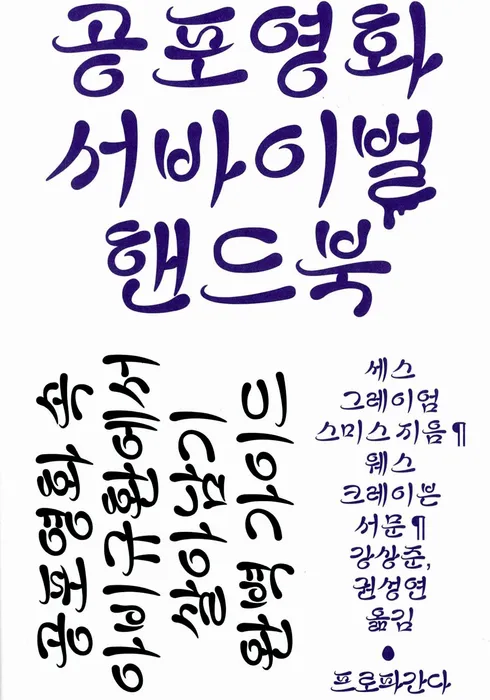 공포영화
서바이벌
핸드북
공포영화 속
아비규환에서
살아남기
가이드
세스
그레이엄
스미스 지음 ¶
웨스
크레이븐
서문 ¶
강상준,
권성연
옮김
●
프로파간다